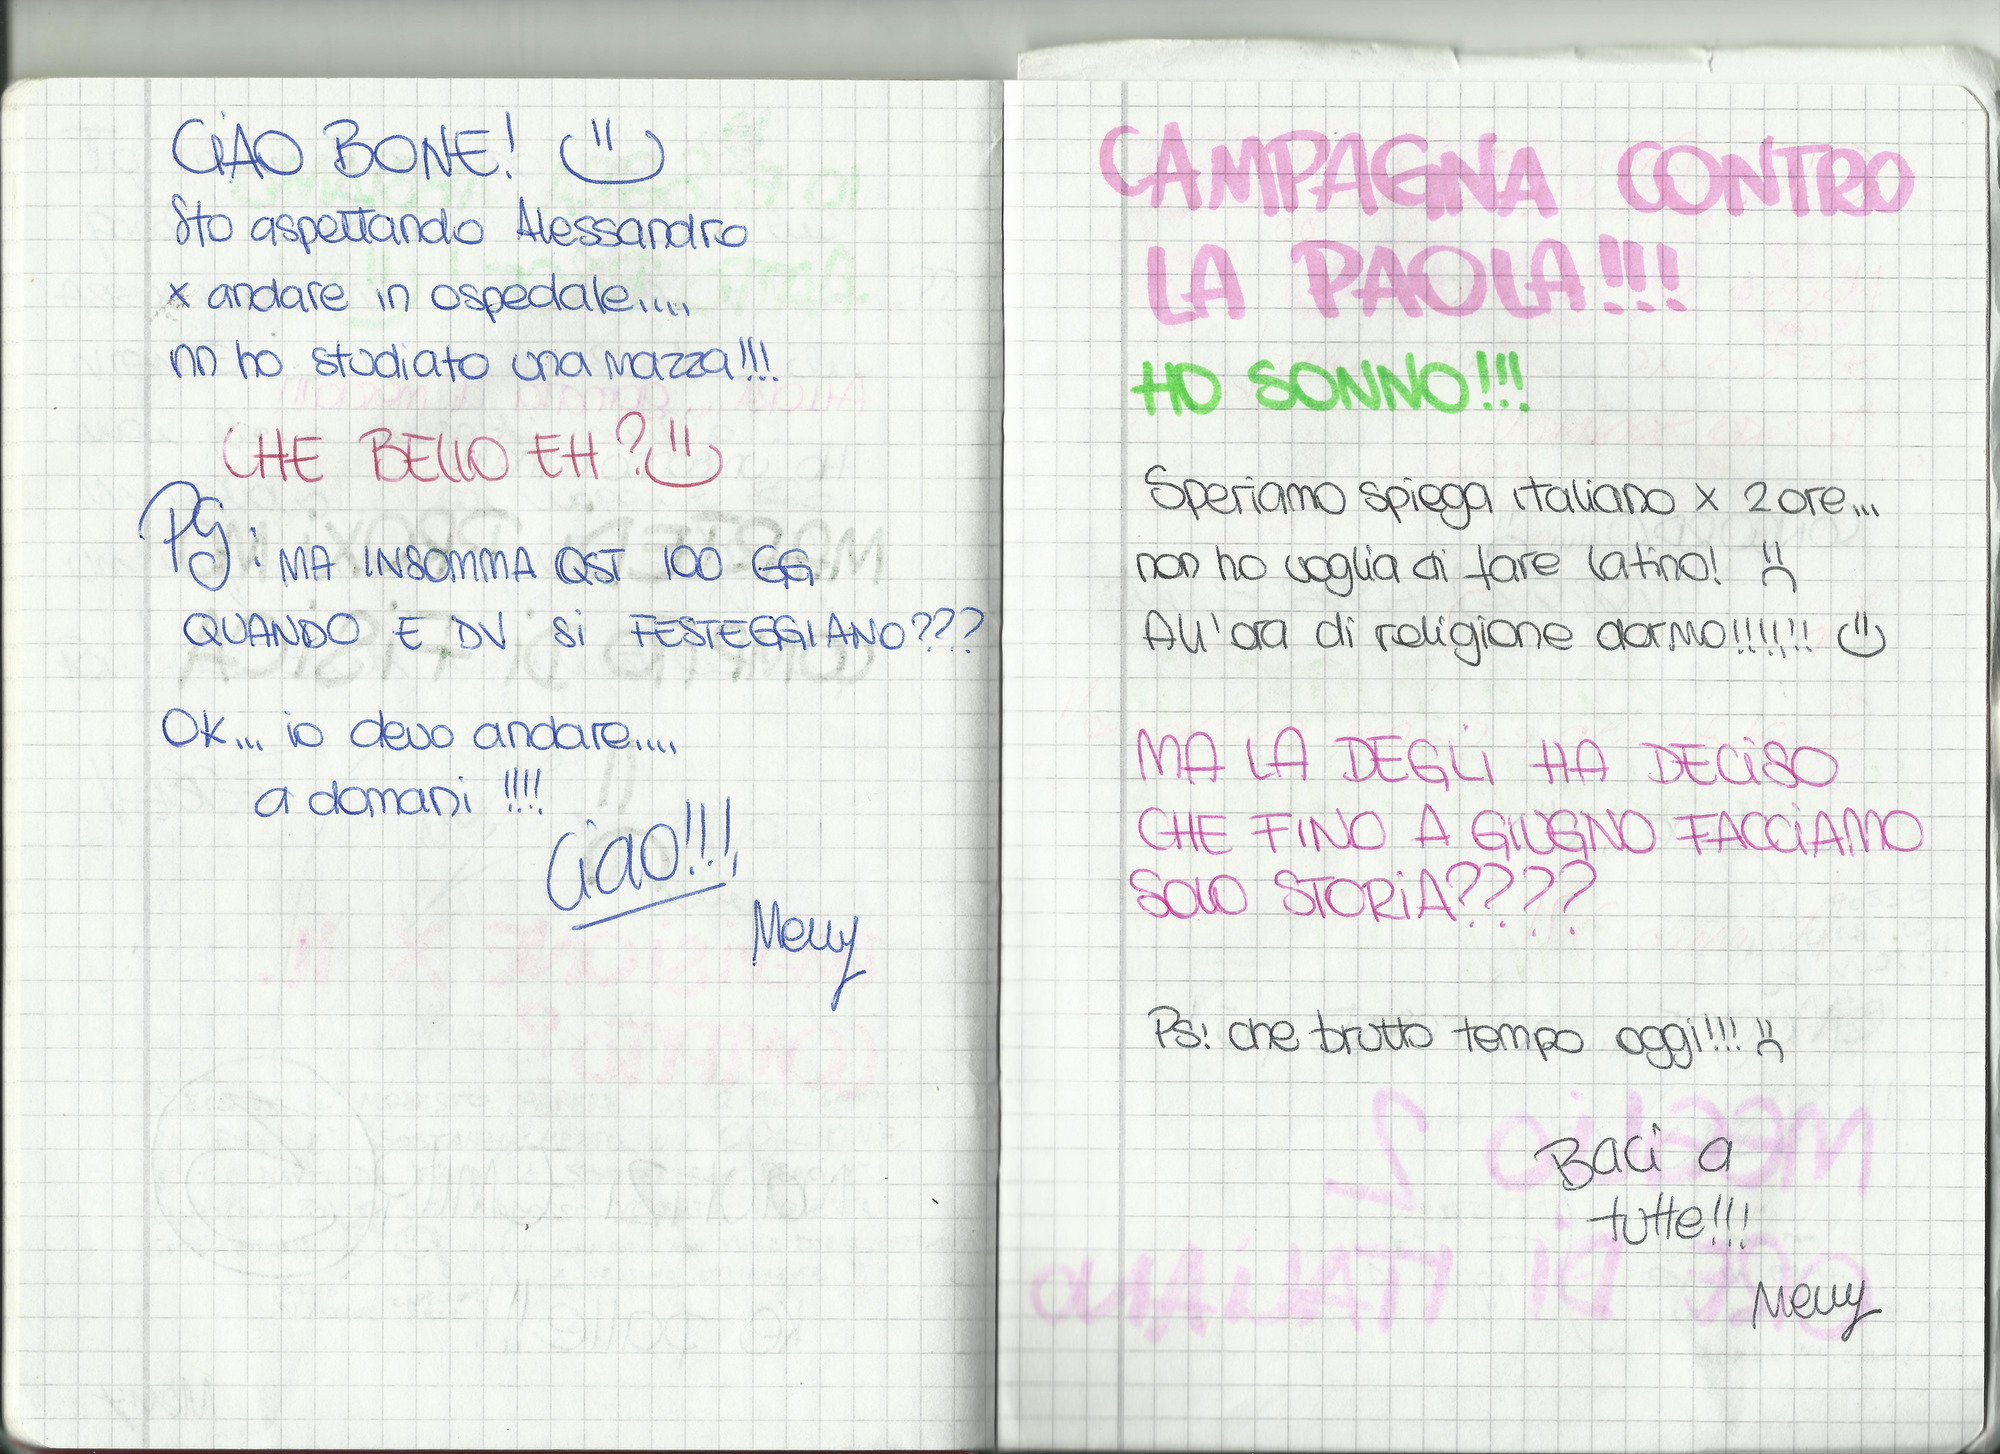 CIAO BONE!
Sto aspettando Alessandro
x andare in ospedale....
nn ho studiato una mazza!!!
CHE BELLO EH?
PS: MA INSOMMA QST 100 GG
QUANDO E DV SI FESTEGGIANO???
OK... io devo andare....
a domani !!!!
Ciao!!!
Meuy
CAMPAGNA CONTRO
LA PAOLA!!!
HO SONNO!!!
Speriamo spiega italiano x 2 ore...
non ho voglia di fare latino!
All'ora di religione dormo!!!!!!
MA LA DEGLI HA DECISO
CHE FINO A GIUGNO FACCIAMO
SOLO STORIA????
Ps: che brutto tempo oggi!!!
Baci a
tutte!!!
Meuy